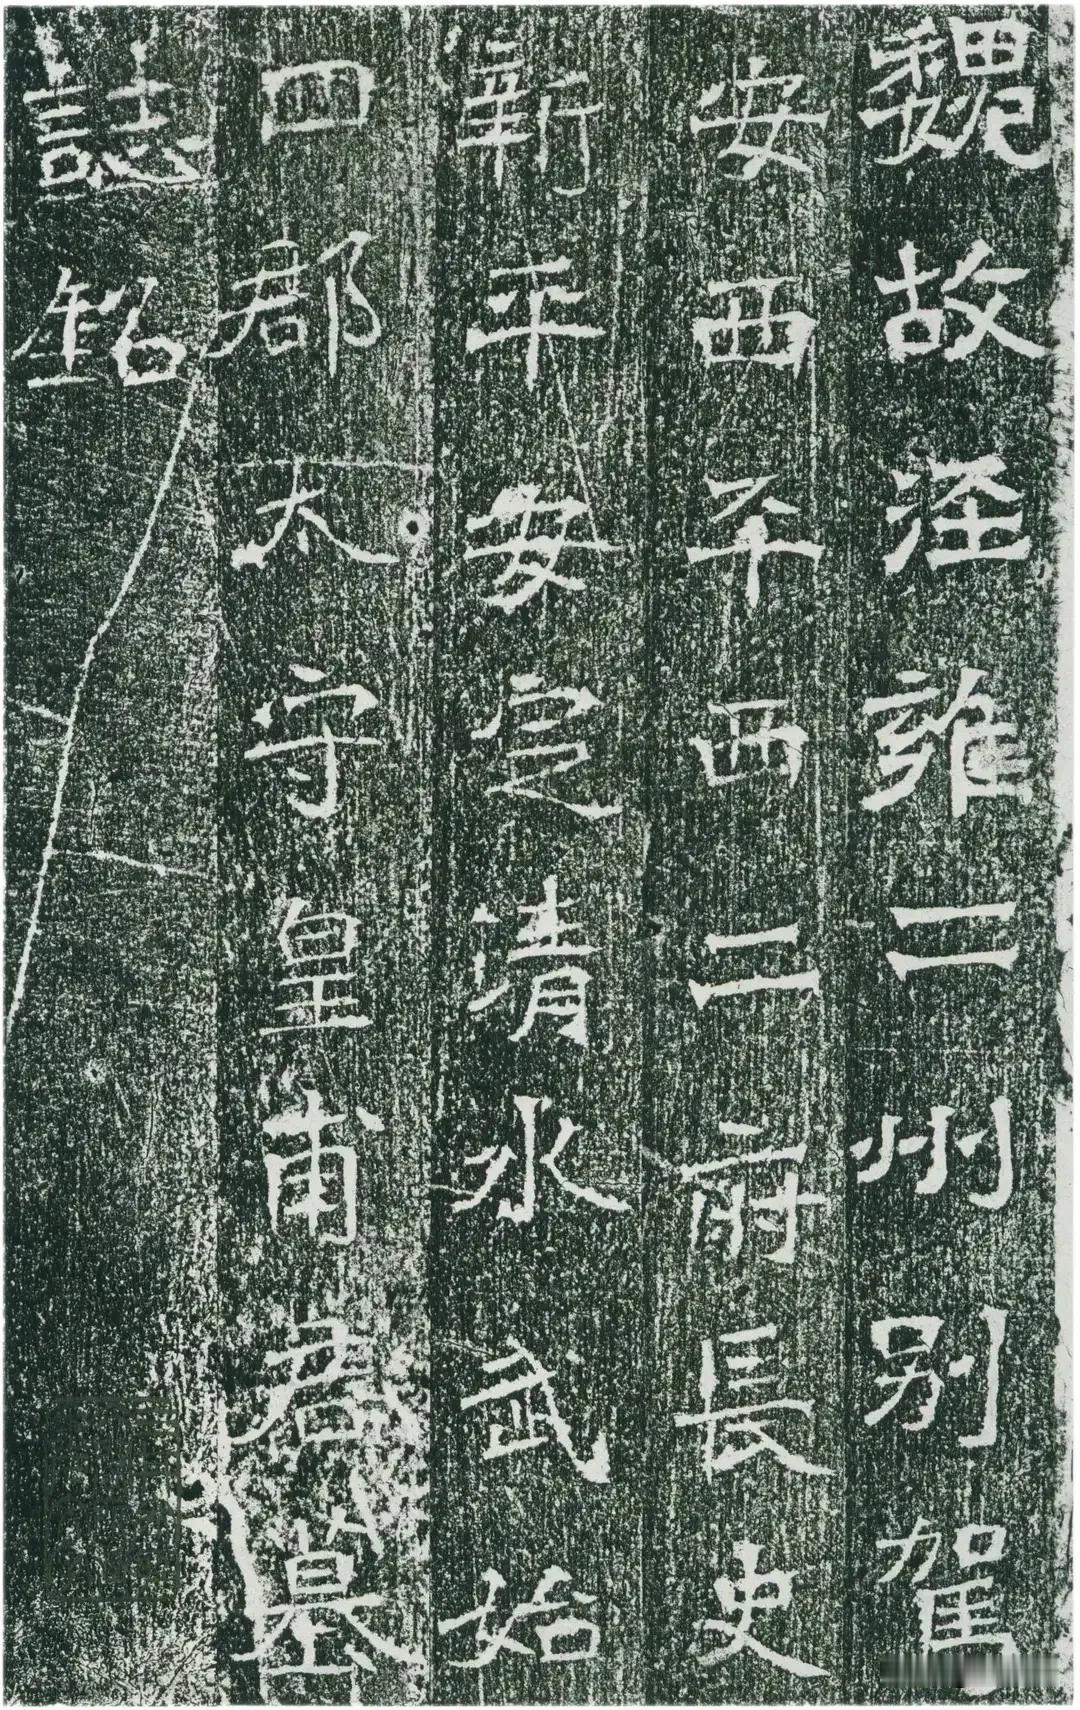 魏故涇雍二州別駕
安西平西二府長史
新平安定清水武始
四郡太守皇甫君墓
誌銘